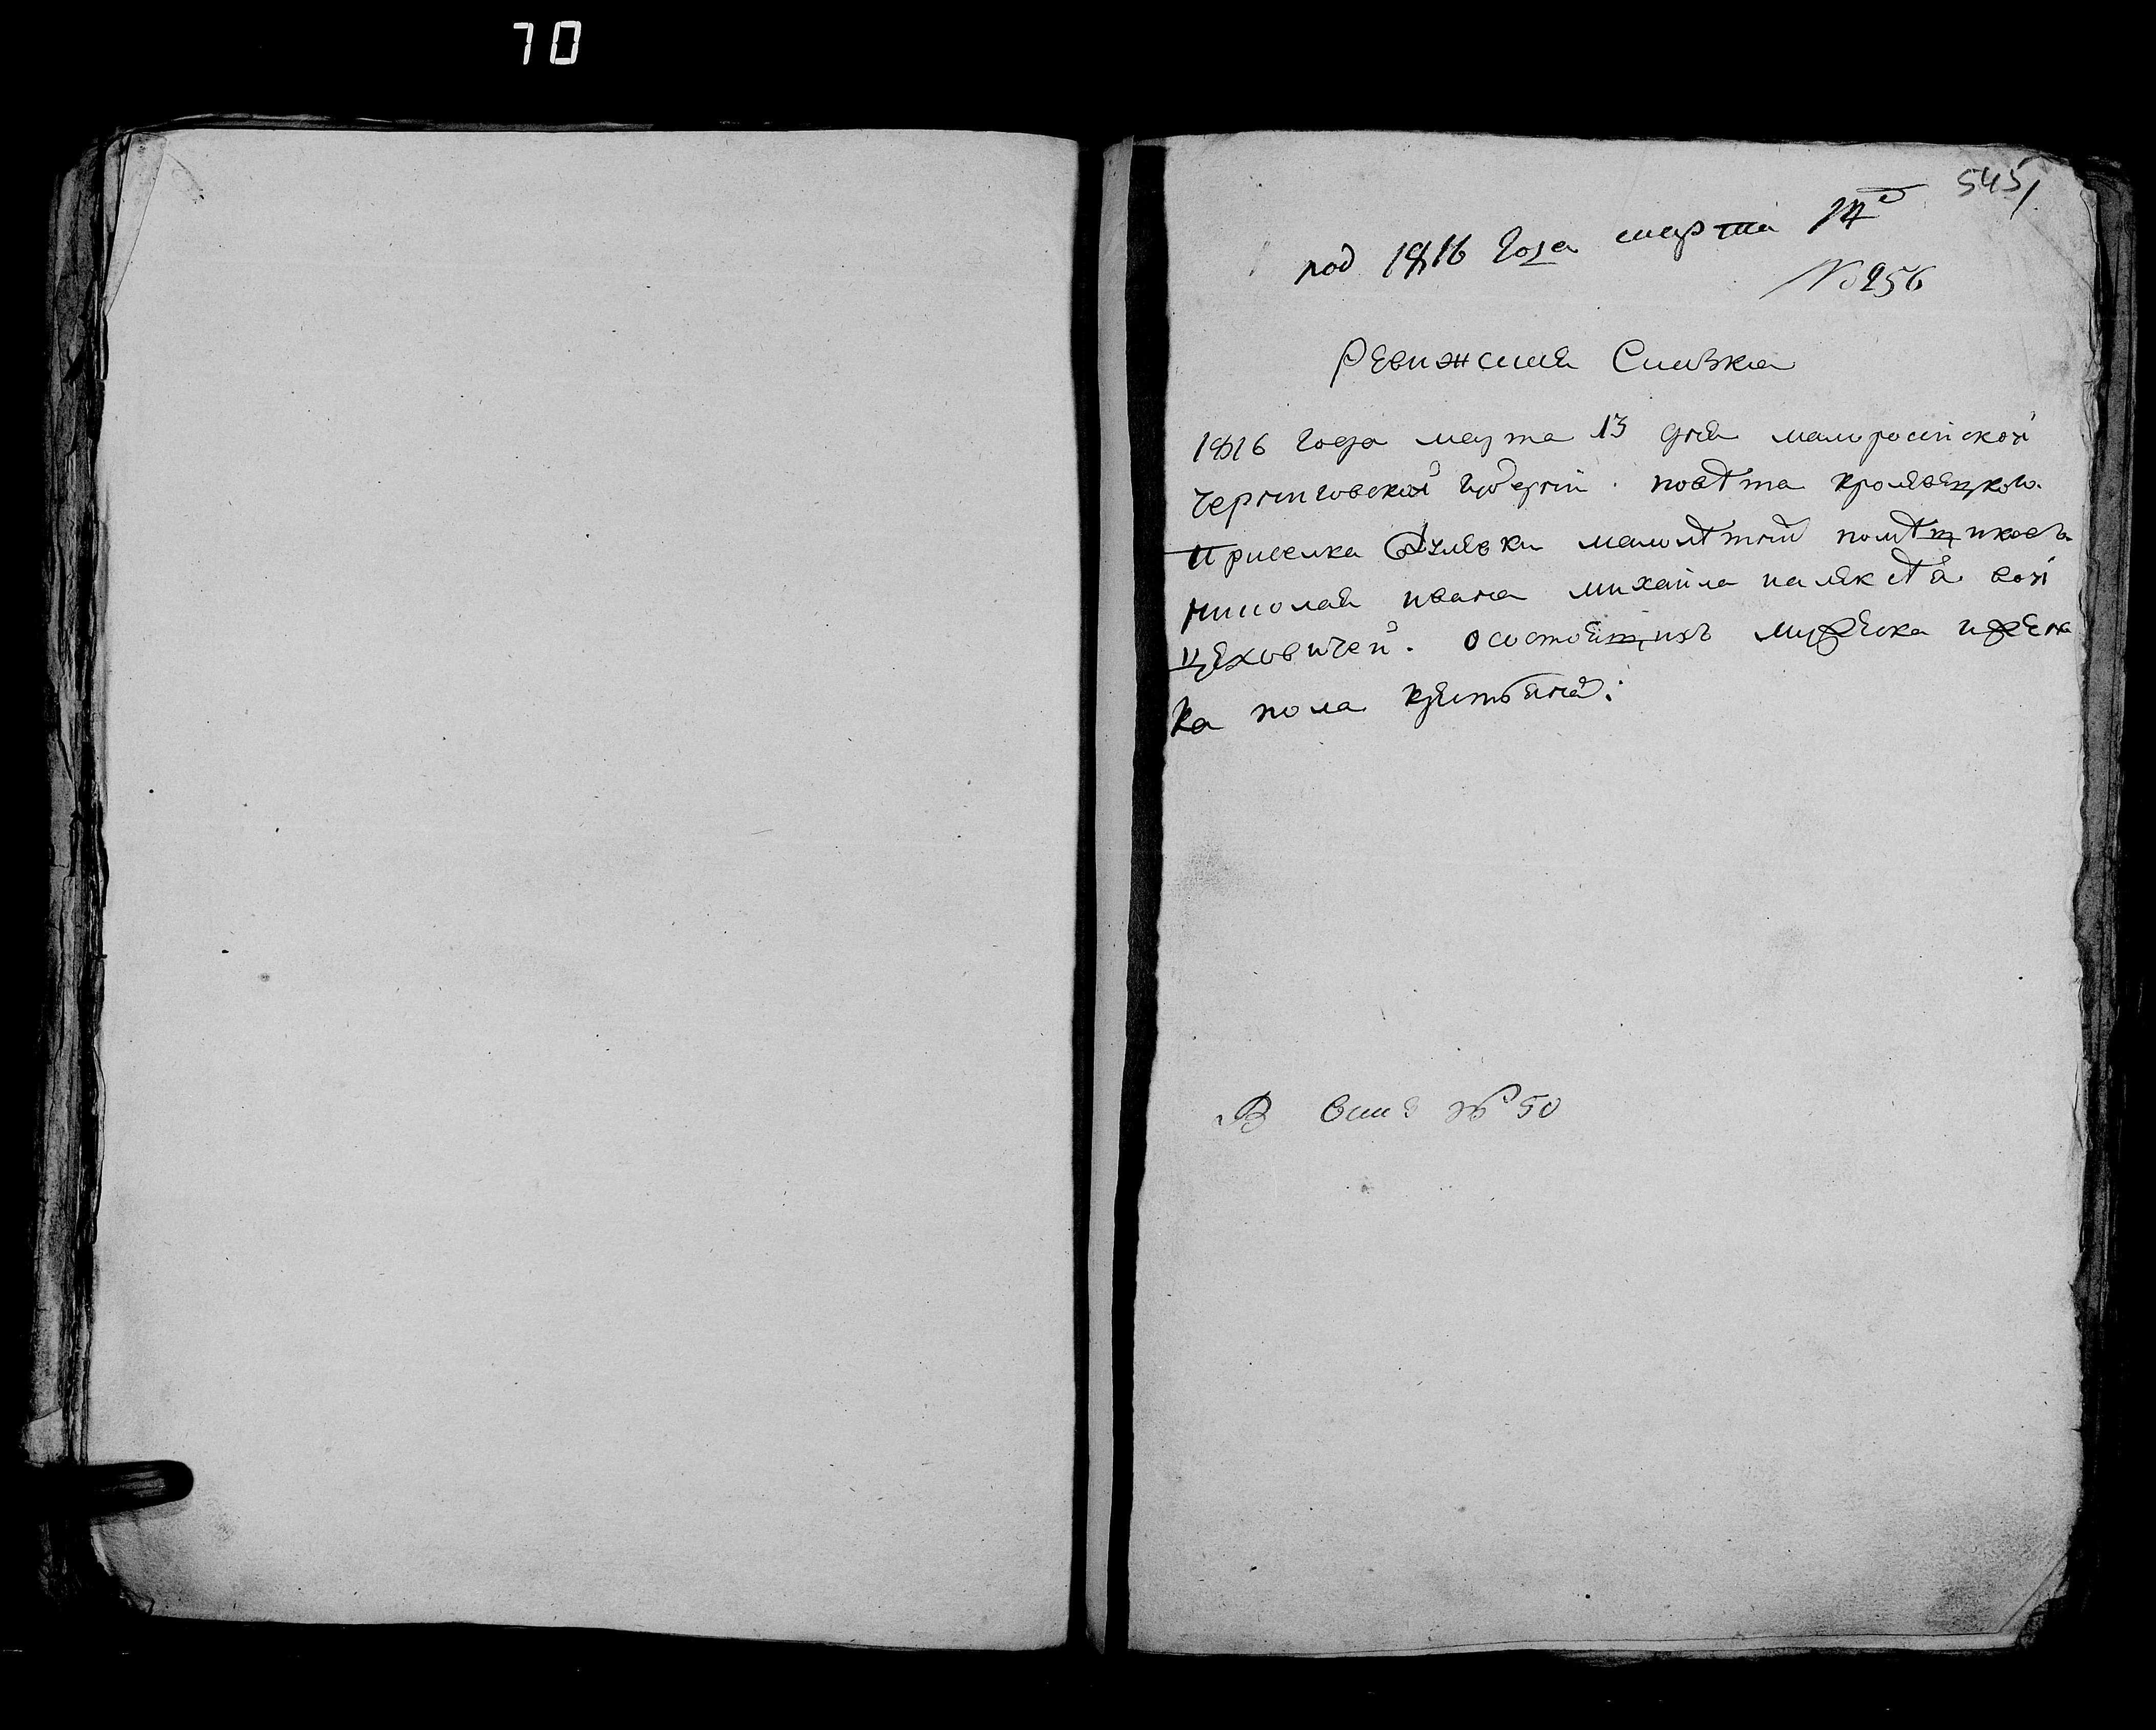 70
545
под 1816 Года марта 14
№ 256
Ревижская Сказка
1816 года марта 13 дня малоросийской
Черниговской Губернии. повѣта кролевецкого
Приселка малолѣтной помѣщиковъ
николая ивана михайла и алексѣя
Цеховичей. о состоящихъ мужеска и женс
ка пола крестьяной:
В № 50